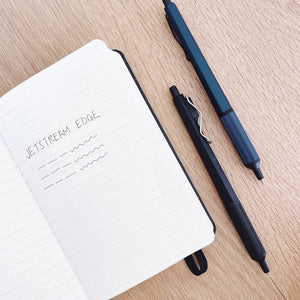 JETSTREAM EDGE